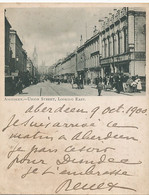 Aberdeen – Union Street, Looking East.
Aberdeen 9 oct. 1900
Je suis arrivé ce
matin à Aberdeen
je pars ce soir
pour Dundee
je t'embrasse